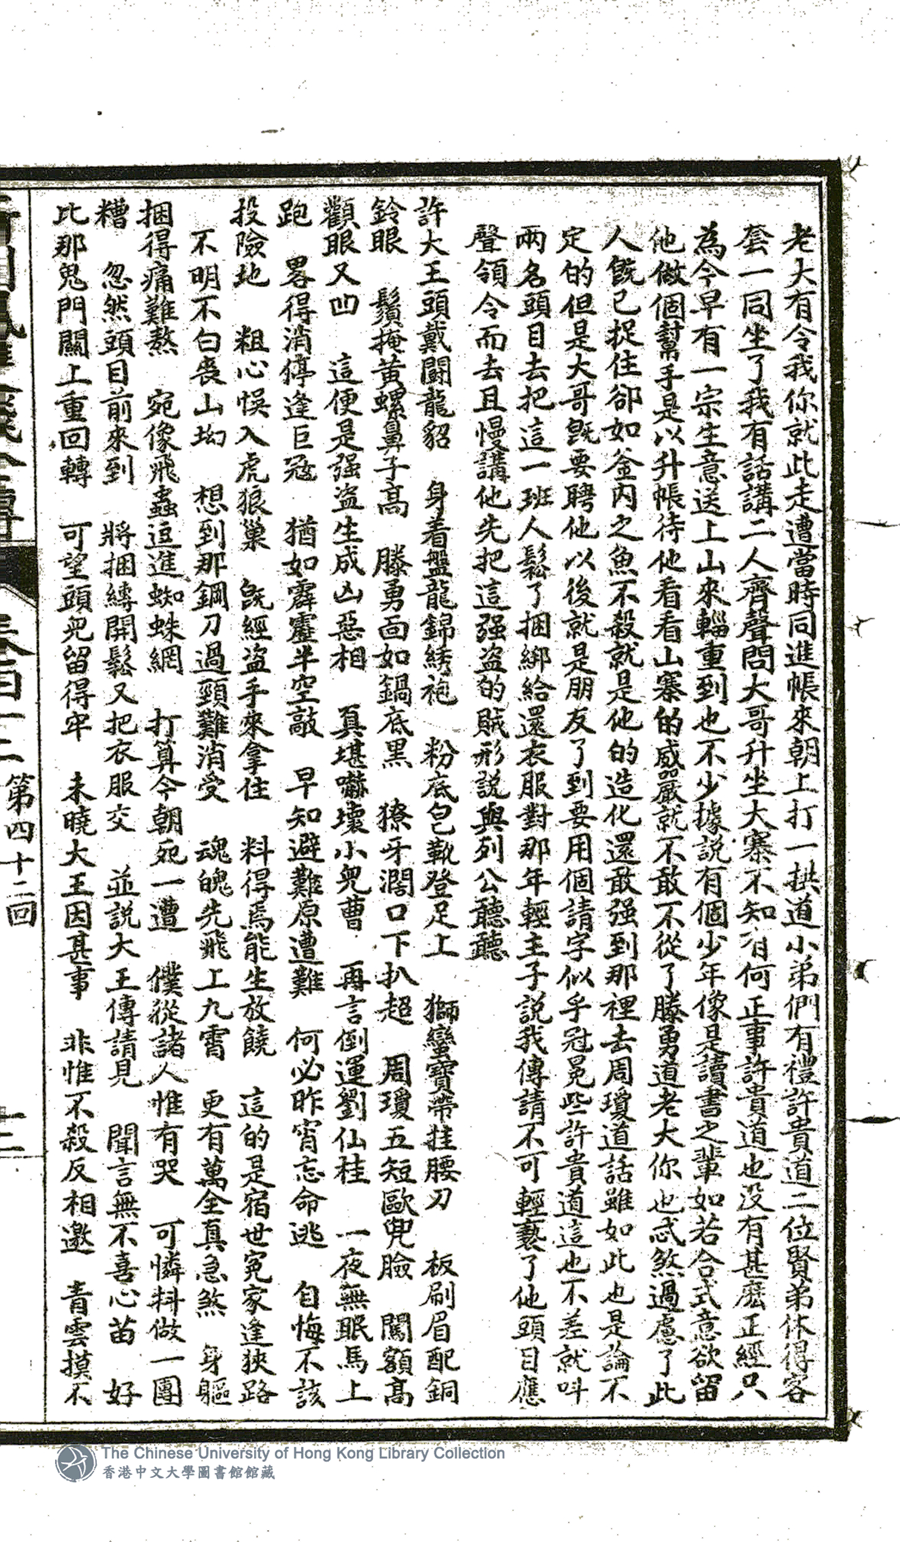 老大有令我你就此走遭當時同進帳來朝上打一拱道小弟們有禮許貴道二位賢弟休得客
套一同坐了我有話講二人齊聲問大哥升坐大寨不知有何正事許貴道也没有甚麽正經只
為今早有一宗生意送上山來輜重到也不少據説有個少年像是讀書之輩如若合式意欲留
他做個幫手是以升帳待他看看山寨的威嚴就不敢不從了滕勇道老大你也忒煞過慮了此
人旣已捉住卻如釜内之魚不殺就是他的造化還敢强到那裡去周瓊道話雖如此也是論不
定的但是大哥旣要聘他以後就是朋友了到要用個請字似乎冠冕些許貴道這也不差就呌
兩名頭目去把這一班人鬆了捆綁給還衣服對那年輕主子説我傳請不可輕褻了他頭目應
聲領令而去且慢講他先把這强盗的賊形説與列公聽聽
許大王頭戴闘龍貂　身着盤龍錦綉袍　粉底皀靴登足上　獅蠻寶帶挂腰刀　板刷眉配銅
鈴眼　鬚掩黄螺鼻子高　滕勇面如鍋底黑　獠牙濶口下扒超　周瓊五短歐兜臉　闊額高
顴眼又凹　這便是强盗生成凶惡相　真堪嚇壞小兒曹　再言倒運劉仙桂　一夜無眠馬上
跑　畧得消停逢巨冦　猶如霹靂半空敲　早知避難原遭難　何必昨宵忘命逃　自悔不該
投險地　粗心悞入虎狼巢　旣經盗手來拿住　料得焉能生放饒　這的是宿世冤家逢狹路
不明不白喪山坳　想到那鋼刀過頸難消受　魂魄先飛上九霄　更有萬全真急煞　身軀
捆得痛難熬　宛像飛蟲逗進蜘蛛網　打算今朝死一遭　僕從諸人惟有哭　可憐抖做一團
糟　忽然頭目前來到　將捆縛開鬆又把衣服交　並説大王傳請見　聞言無不喜心苗　好
比那鬼門關上重回轉　可望頭兒留得牢　未曉大王因甚事　非惟不殺反相邀　青雲摸不
第四十二回
The Chinese University of Hong Kong Library Collection
香港中文大學圖書館館藏